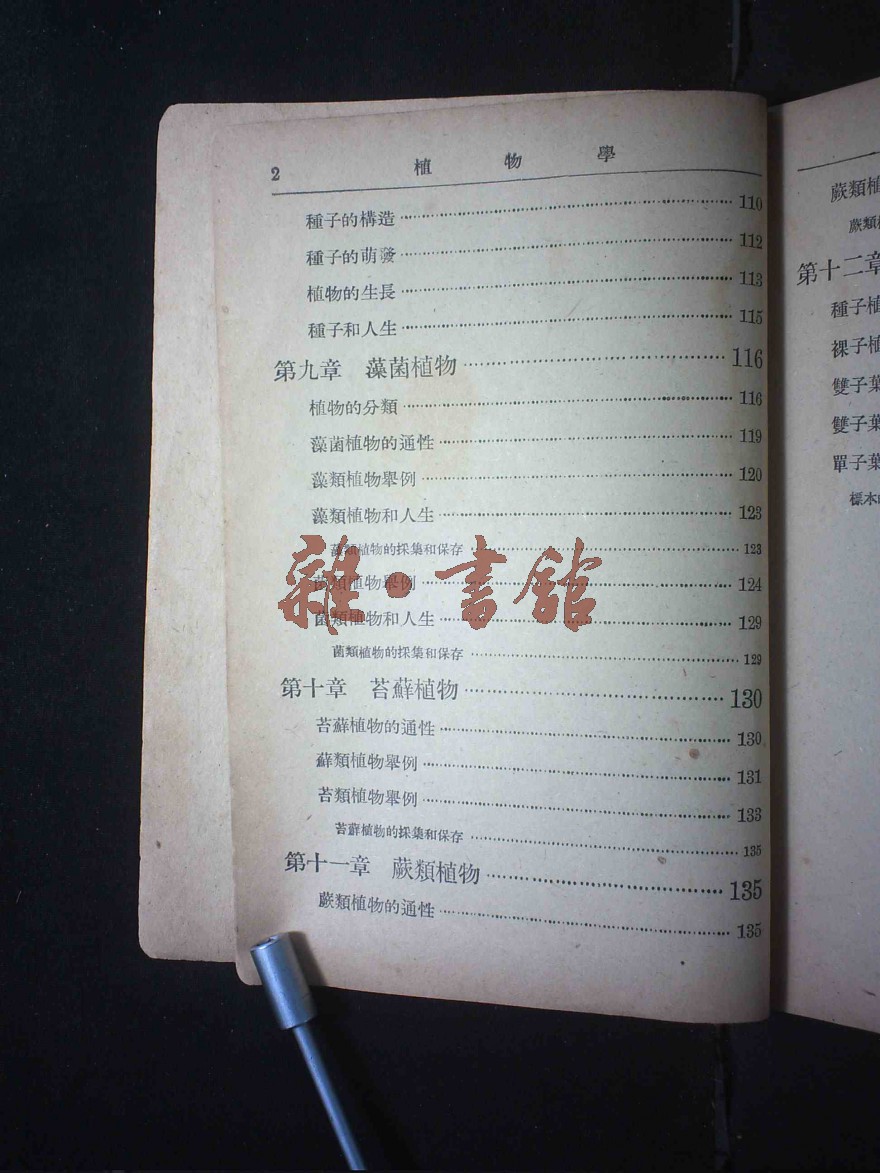 2 植物學
種子的構造 110
種子的萌發 112
植物的生長 113
種子和人生 115
第九章 藻菌植物 116
植物的分類 116
藻菌植物的通性 119
藻類植物舉例 120
藻類植物和人生 123
藻類植物的採集和保存 123
菌類植物舉例 124
菌類植物和人生 129
菌類植物的採集和保存 129
第十章 苔蘚植物 130
苔蘚植物的通性 130
蘚類植物舉例 131
苔類植物舉例 133
苔蘚植物的採集和保存 135
第十一章 蕨類植物 135
蕨類植物的通性 135
雜·書館
蕨類植
蕨類
第十二章
種子植
裸子植
雙子葉
雙子葉
單子葉
標本